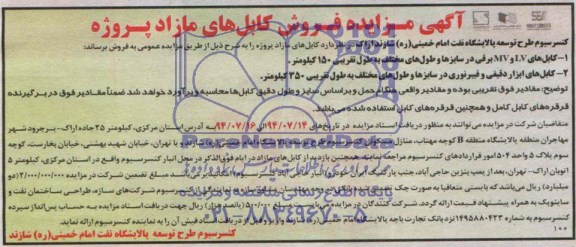 آگهی مزایده فروش کابل‌های مازاد پروژه
کنسرسیوم طرح توسعه پالایشگاه نفت امام خمینی(ره) شازند اراک در نظر دارد کابل‌های مازاد پروژه را به شرح ذیل از طریق مزایده عمومی به فروش برساند:
۱- کابل‌های LV و MV برقی در سایزها و طول‌های مختلف به طول تقریبی ۱۵۰ کیلومتر.
۲- کابل‌های ابزار دقیقی و فیبرنوری در سایزها و طول‌های مختلف به طول تقریبی ۳۵۰ کیلومتر.
توضیح: مقادیر فوق تقریبی بوده و مقادیر واقعی هنگام حمل و براساس سایز و طول دقیق کابل‌ها محاسبه و برآورد خواهد شد ضمناً مقادیر فوق در برگیرنده
قرقره‌های کابل کامل و همچنین قرقره‌های کابل استفاده شده می‌باشد.
متقاضیان شرکت در مزایده می‌توانند به منظور دریافت اسناد مزایده در تاریخ‌های ۹۴/۰۷/۱۴ الی ۹۴/۰۷/۱۶ به آدرس استان مرکزی، کیلومتر ۲۵ جاده اراک- بروجرد شهر
مهاجران منطقه پالایشگاه منطقه B کوچه مهتاب، منازل و یا تهران، خیابان شهید بهشتی، خیابان پخارست، کوچه
سوم پلاک ۵ واحد ۵۰۴ امور قراردادهای کنسرسیوم مراجعه نمایند همچنین بازدید از کابل‌های مازاد در ایام فوق‌الذکر در محل انبار کنسرسیوم واقع در استان مرکزی، کیلومتر ۵
اتوبان اراک- تهران، بعد از پمپ بنزین حاجی آباد، جنب مبلغ تضمین شرکت در مزایده ۲/۰۰۰/۰۰۰/۰۰۰ (دو
میلیارد) ریال می‌باشد که بایستی متعاقباً به صورت چک کنسرسیوم شرکت‌های سازه، طراحی ساختمان نفت و
سایتویک به همراه پیشنهاد قیمت ارائه گردد. شرکت کنندگان در مزایده می‌بایست مبلغ ۵۰۰/۰۰۰ (پانصد هزار) ریال جهت دریافت اسناد مزایده به حساب پس‌انداز سپرده
شماره ۱۴۹۵۸۸۰۴۲۳ نزد بانک تجارت باجه پالایشگاه امام خمینی فیش آن را به نماینده کنسرسیوم ارائه نمایند.
کنسرسیوم طرح توسعه پالایشگاه نفت امام خمینی(ره) شازند
۱۰۰
۰۲۱-۸۸۳۴۹۶۷۰-۵